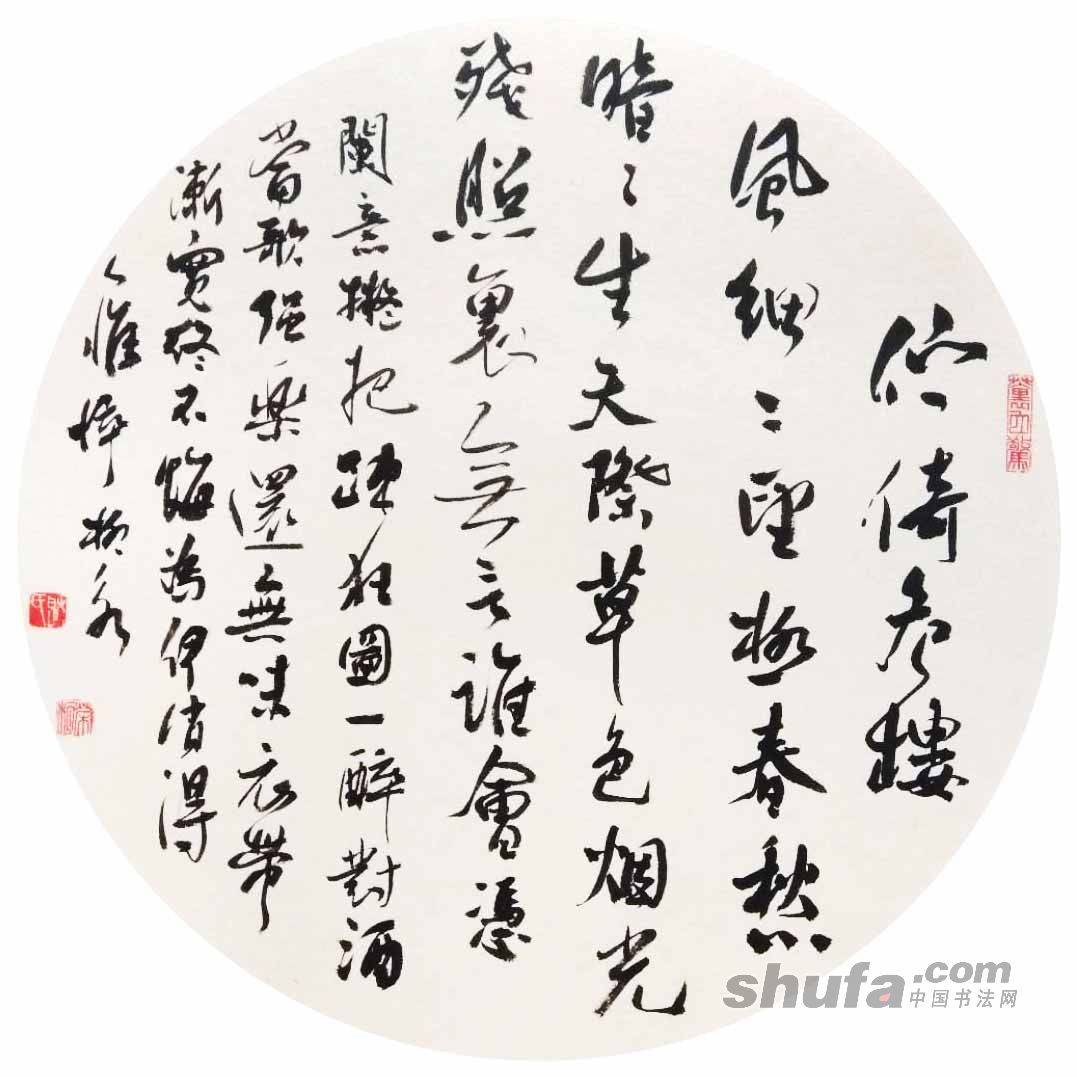 伫倚危楼
風細〻望極春愁
黯〻生天際草色烟光
殘照裏無言誰會憑
闌意擬把疎狂圖一醉對酒
當歌强樂還無味衣帶
漸寬終不悔為伊消得
人憔悴 柳永
shufa.com
中国书法网